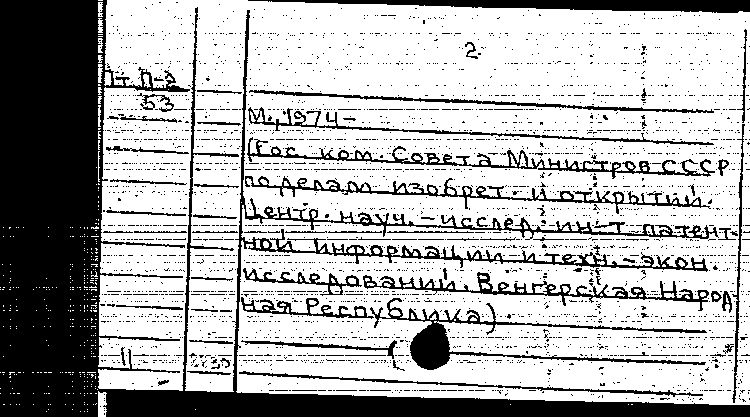 2.
П-2
53
М., 1974-
(Гос. ком. Совета Министров СССР
по делам изобрет. и открытий.
Центр. науч.-исслед. ин-т патент-
ной информации и техн.-экон.
исследований. Венгерская Народ
ная Республика).
11